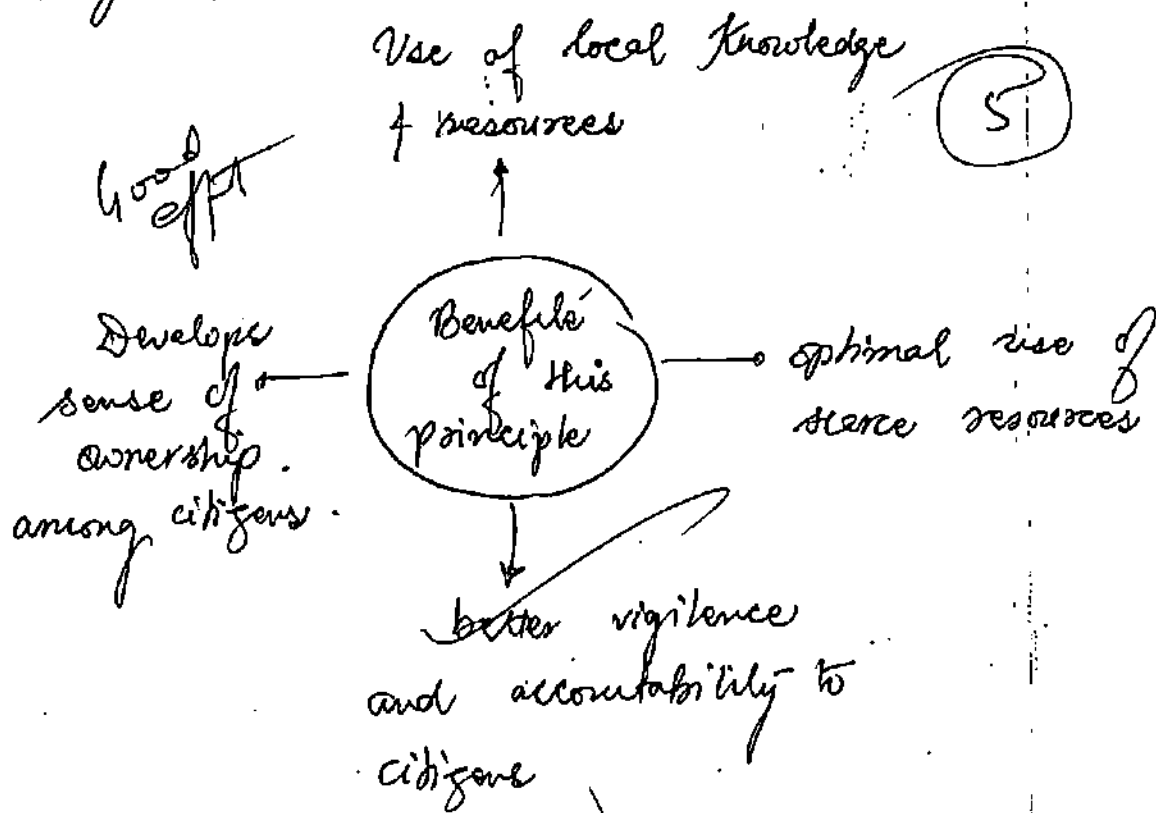 Use of local Knowledge
& resources
5
Good
effт
Develops
sense of
ownership.
among citizens.
Benefits
of this
principle
optimal use of
scarce resources
better vigilence
and accountability to
citizens